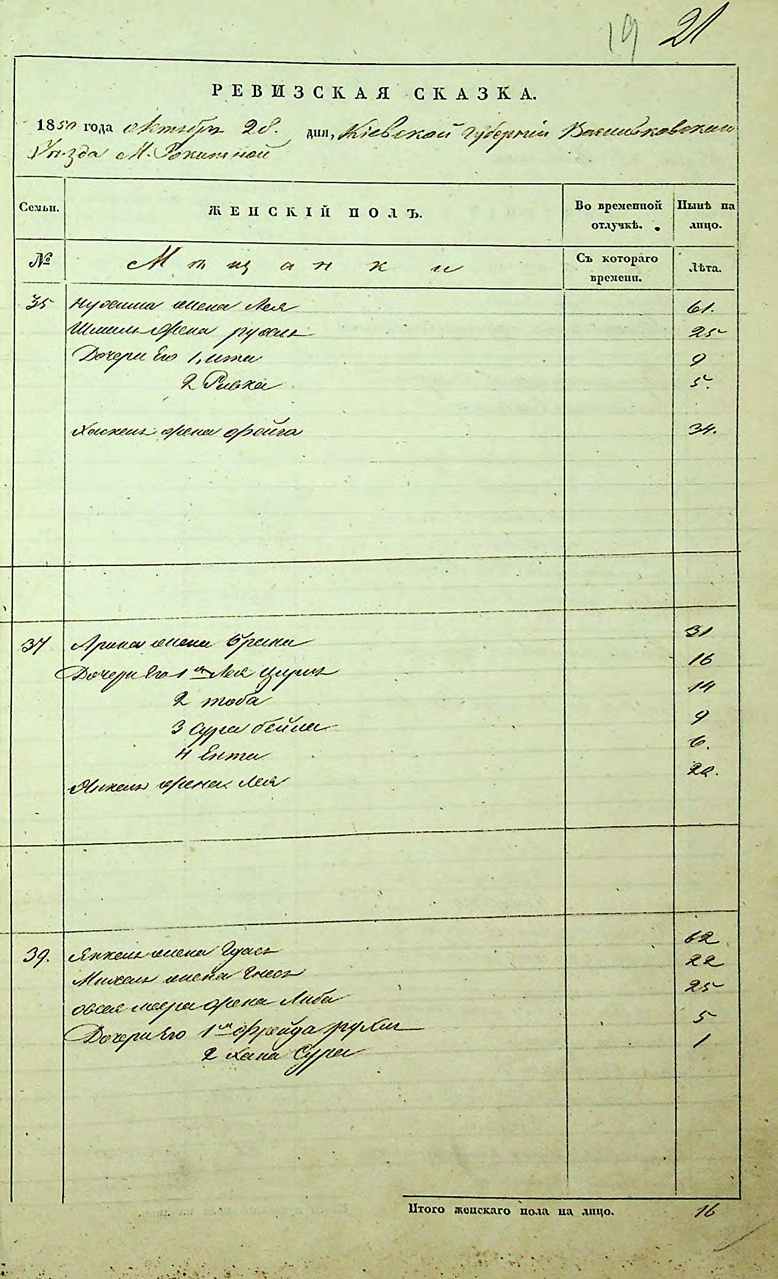 19 21
РЕВИЗСКАЯ СКАЗКА.
1850 года октября 28. дня, Кіевской Губерніи Васильковскаго
Уѣзда М. Рокитной
Семьи. ЖЕНСКІЙ ПОЛЪ. Во временной отлучкѣ. Нынѣ на лицо.
№ Мѣщанки Съ котораго времени. Лѣта.
35 Нухима жена Лея 61.
Шмиль жена рухль 25
Дочери Его 1, ити 9
2 Ривка 5.
Хаскель жена фейга 34.
37 Арона жена Брана 31
Дочери Его 1я Лея Цирль 16
2 тоба 14
3 Сура бейла 9
4 Ента 6.
Янкель жена Лея 22.
39. Янкель жена 62
Михель жена Гнесь 22
овсея меера жена Либа 25
Дочери Его 1я фрейда рухль 5
2 Хана Сура 1
Итого женскаго пола на лицо. 16